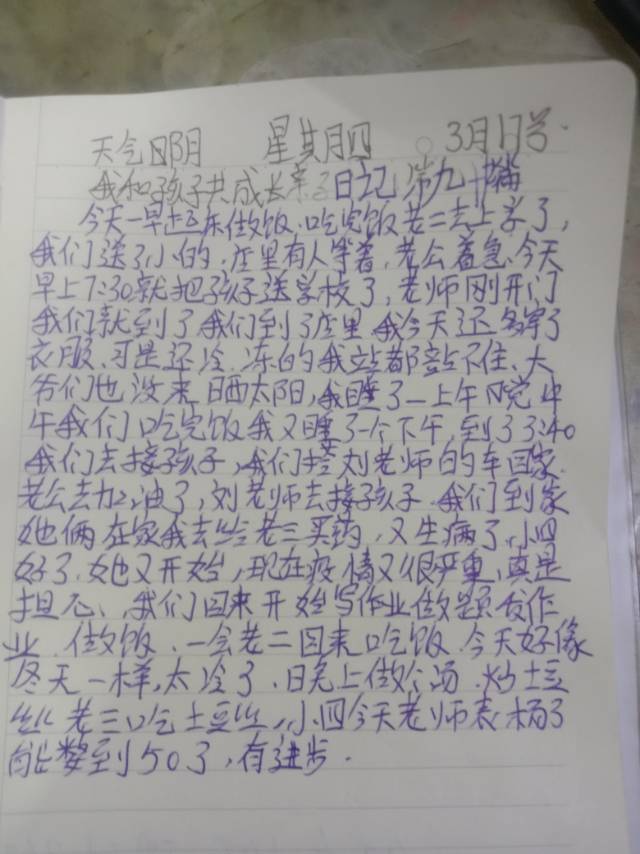 天气阴 星期四 3月17号.
我和孩子共成长亲子日记第九十篇
今天一早起床做饭.吃完饭老二去上学了,
我们送了小的.店里有人等着.老公着急.今天
早上7:30就把孩子送学校了,老师刚开门
我们就到了.我们到了店里.我今天还多穿了
衣服.可是还冷.冻的我站都站不住、大
爷们也没来晒太阳,我睡了一上午晚.中
午我们吃完饭我又睡了一个下午.到了3:40
我们去接孩子,我们搭刘老师的车回家.
老公去加油了,刘老师去接孩子.我们到家
她俩在家我去给老三买药,又生病了,小四
好了.她又开始,现在疫情又很严重,真是
担心、我们回来开始写作业做题发作
业.做饭.一会老二回来吃饭.今天好像
冬天一样,太冷了.晚上做个汤.炒土豆
丝.老三吃土豆丝,小四今天老师表杨了
能数到50了,有进步.